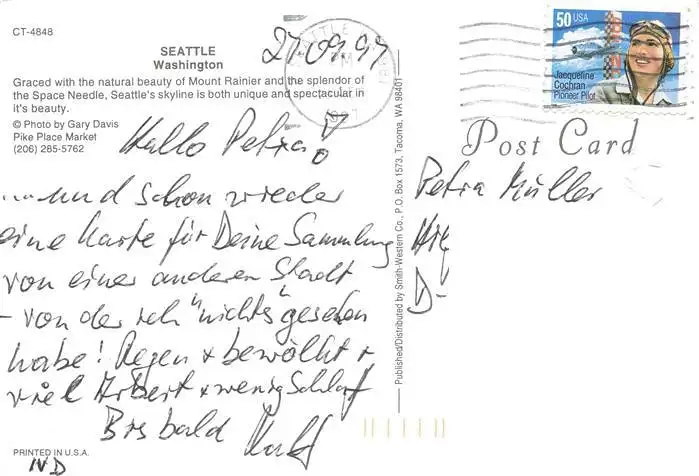 CT-4848
SEATTLE
Washington
Graced with the natural beauty of Mount Rainier and the splendor of
the Space Needle, Seattle's skyline is both unique and spectacular in
it's beauty.
© Photo by Gary Davis
Pike Place Market
(206) 285-5762
27.09.97
Hallo Petra!
und schon wieder
eine Karte für Deine Sammlung
von einer anderen Stadt
- von der ich "nichts" gesehen
habe! Regen + bewölkt +
viel Arbeit + wenig Schlaf
Bis bald
PRINTED IN U.S.A.
ND
Published/Distributed by Smith-Western Co., P.O. Box 1573, Tacoma, WA 98401
50 USA
Jacqueline
Cochran
Pioneer Pilot
Post Card
Petra Müller
D-